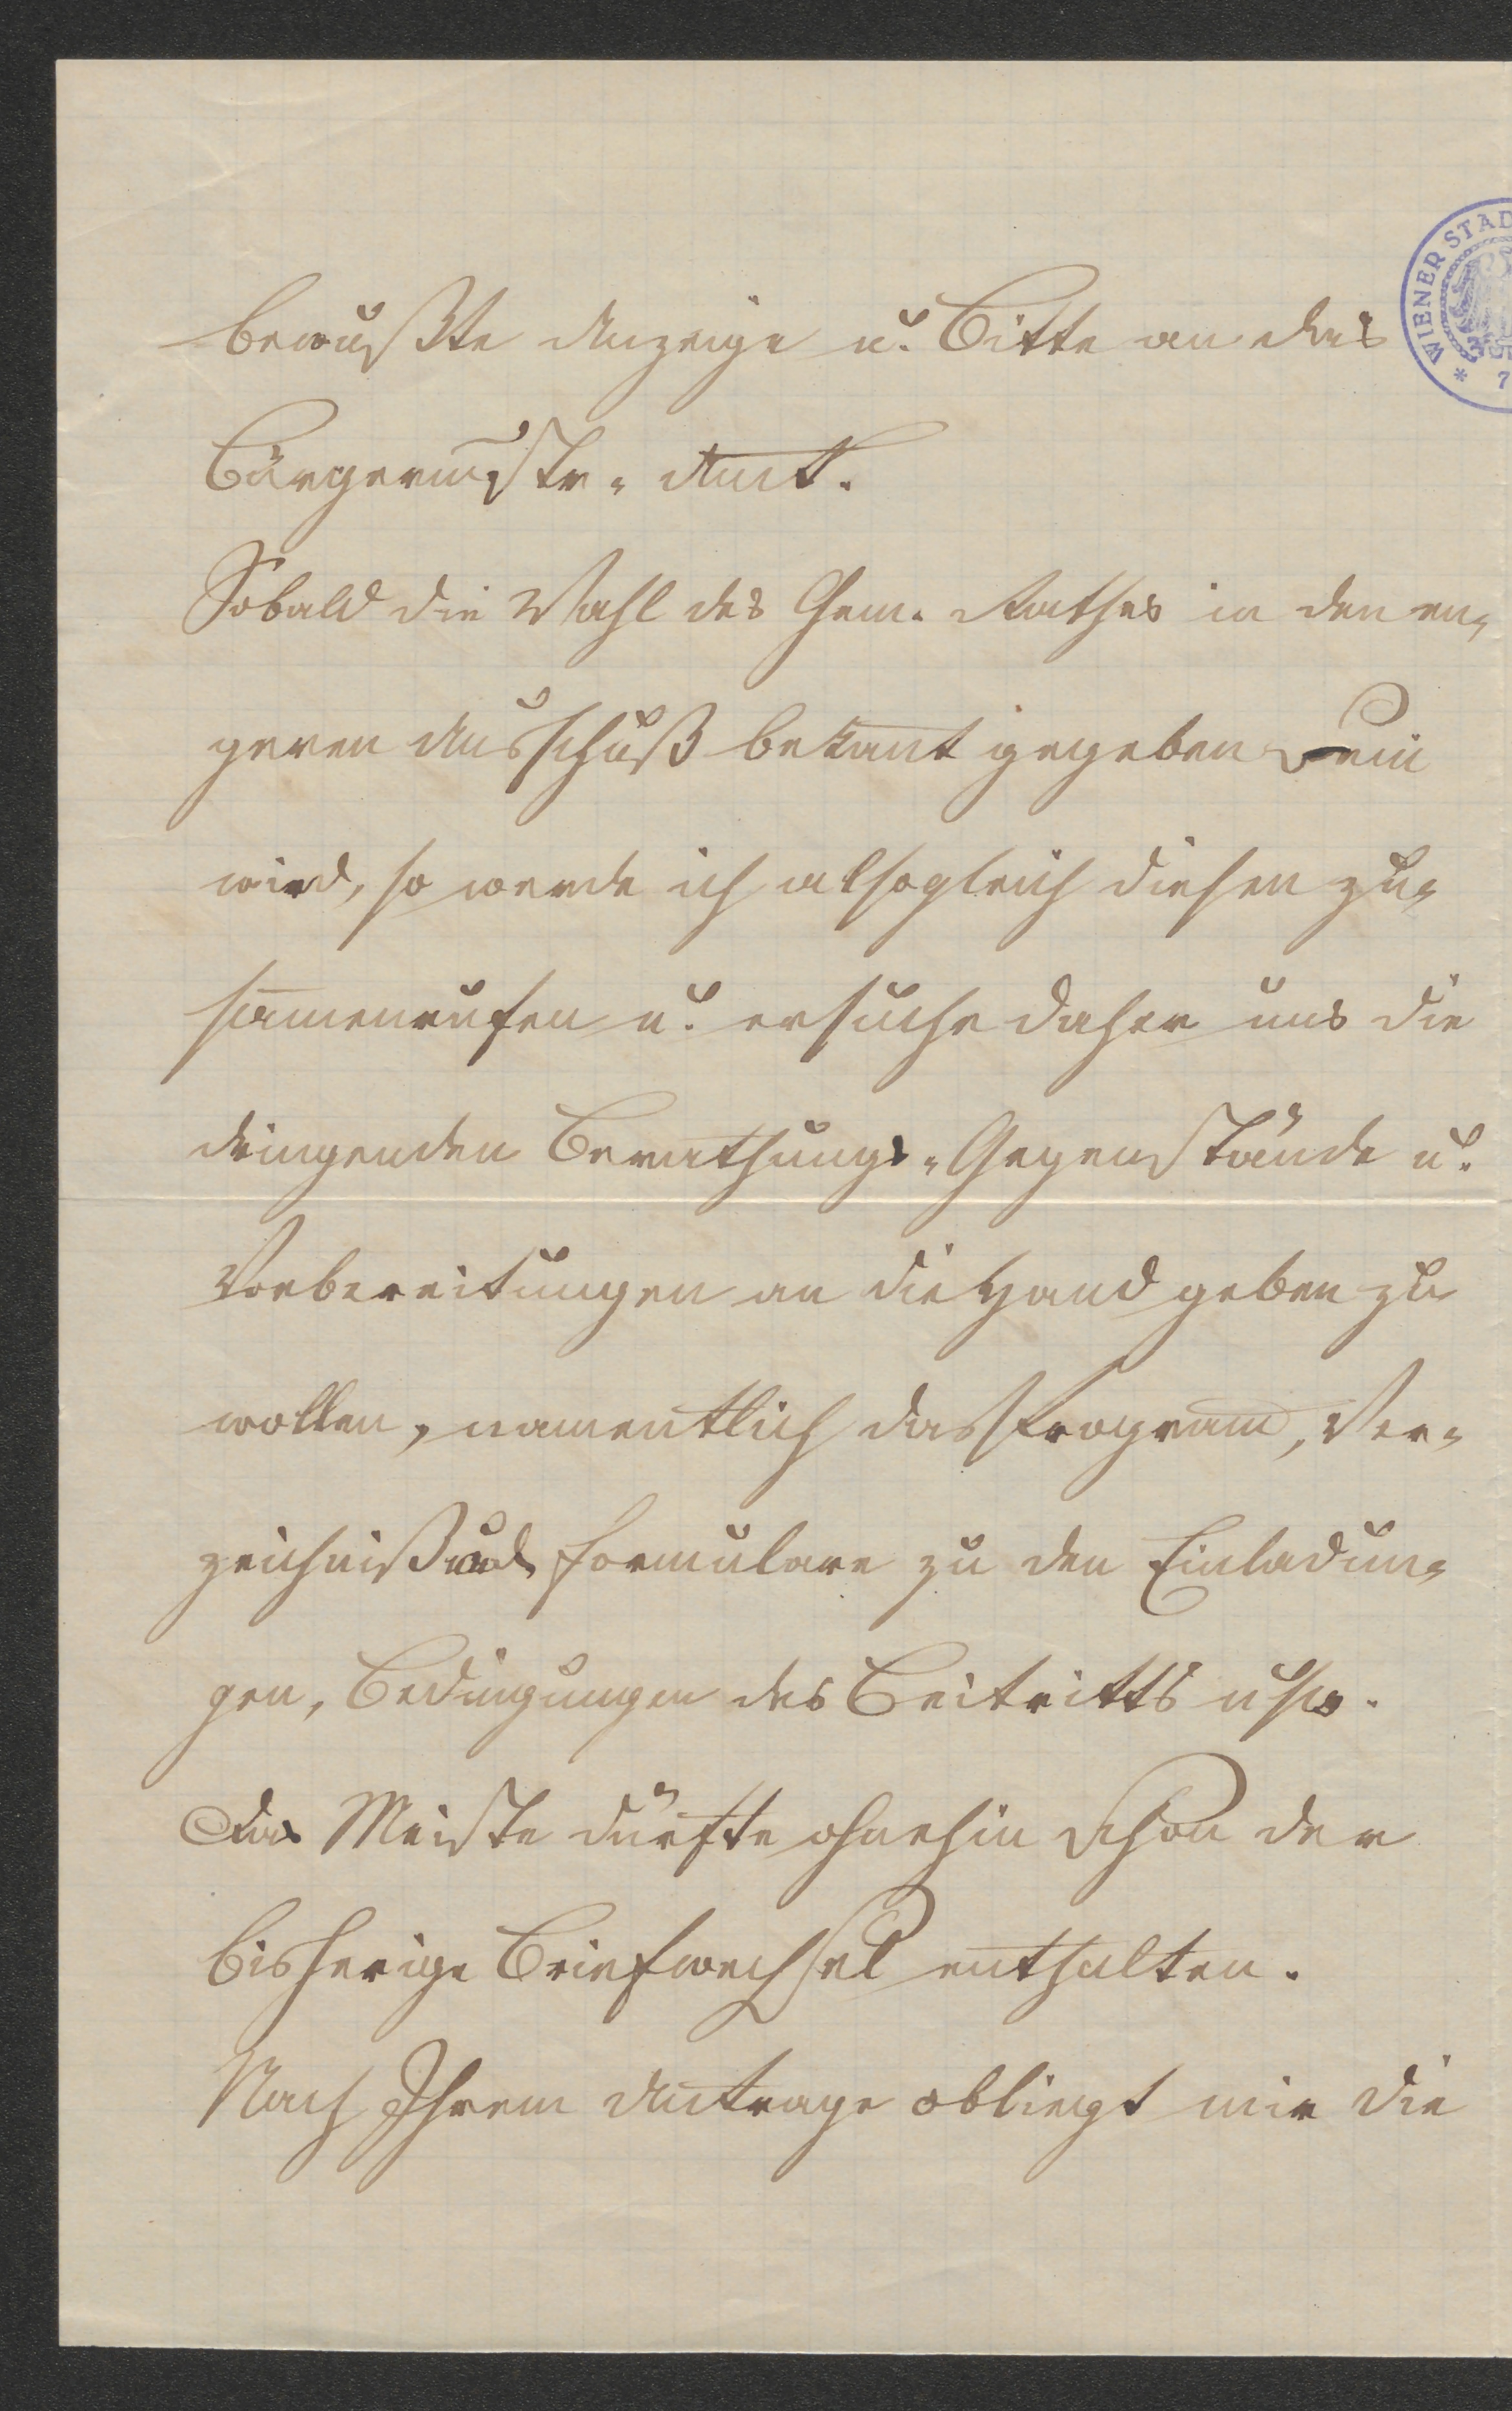 bewußte Anzeige u. Bitte an das
Bürgermstr.-Amt.
Sobald die Wahl des Gem. Rathes in den en-
geren Ausschuß bekan̄t gegeben sein
wird, so werde ich alsogleich diesen zu-
sam̄enrufen u. ersuche daher uns die
dringenden Berathungs-Gegenstände u.
Vorbereitungen an die Hand geben zu
wollen, namentlich das Program̄, Ver-
zeichniß und Formulare zu den Einladun-
gen, Bedingungen des Beitritts usw.
Das Meiste dürfte ohnehin schon der
bisherige Briefwechsel enthalten.
Nach Ihrem Antrage obliegt mir die
WIENER STAD
* 7